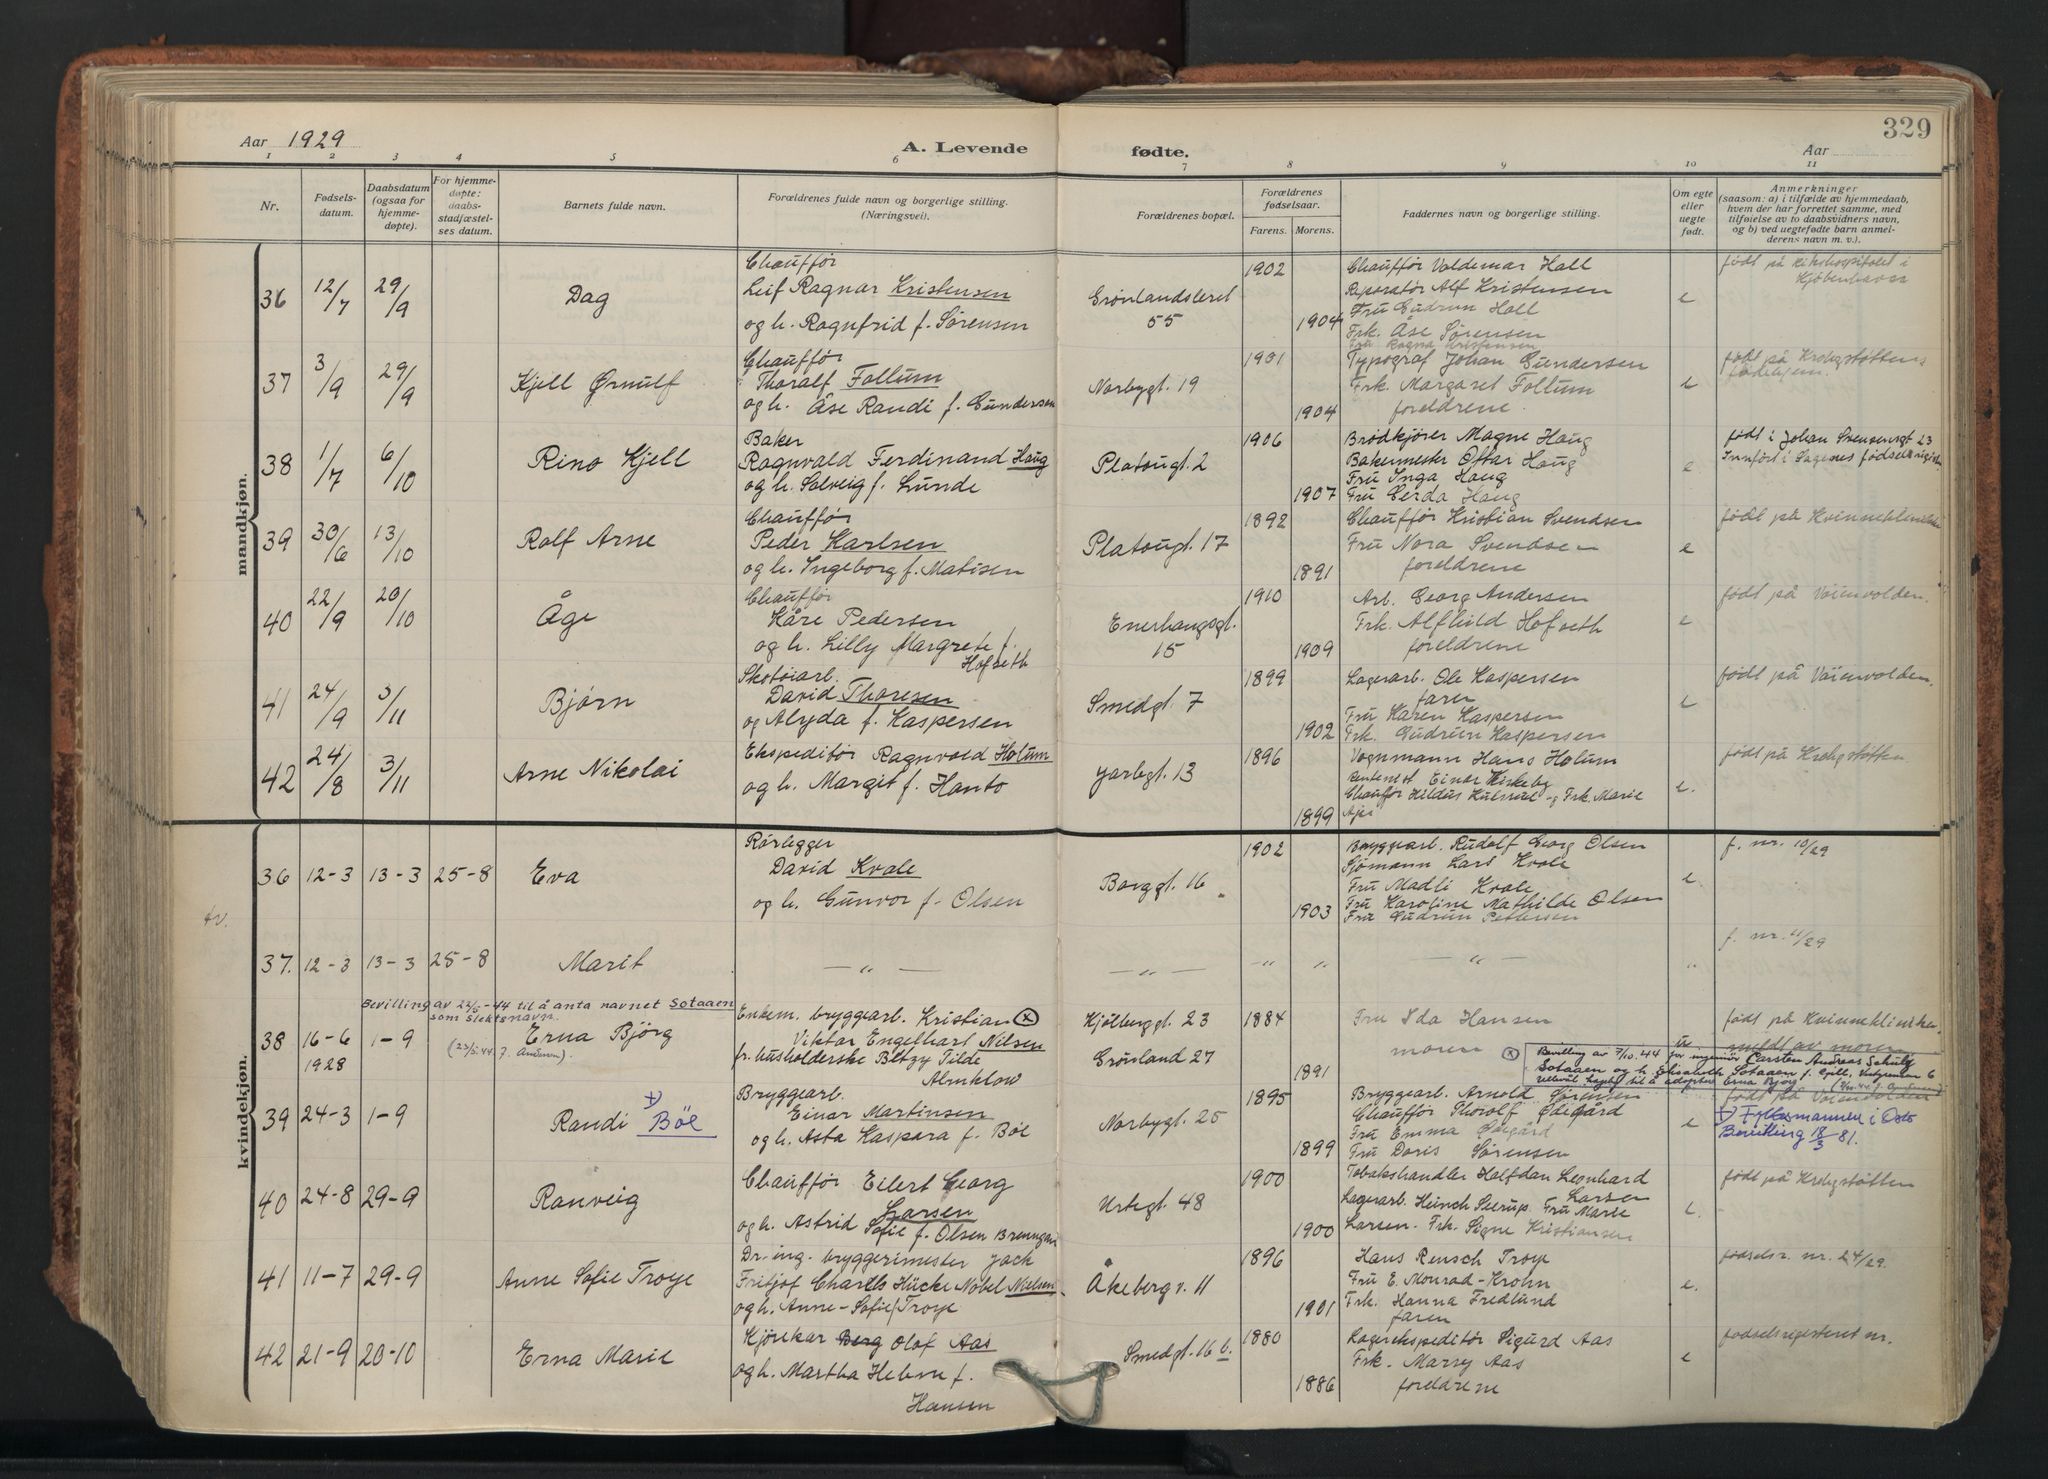 Aar 1929
A. Levende fødte.
Aar
329
1 2 3 4 5 6 7 8 9 10 11
Nr.
Fødsels-datum.
Daabsdatum (ogsaa for hjemme-døpte).
For hjemme-døpte: daabs-stadfæstel-ses datum.
Barnets fulde navn.
Forældrenes fulde navn og borgerlige stilling. (Næringsvei).
Forældrenes bopæl.
Forældrenes fødselsaar.
Farens. Morens.
Faddernes navn og borgerlige stilling.
Om egte eller uegte født.
Anmerkninger (saasom: a) i tilfælde av hjemmedaab, hvem der har forrettet samme, med tilføielse av to daabsvidners navn, og b) ved uegtefødte barn anmel-derens navn m. v.).
mandkjøn.
36 12/7 29/9 Dag
Chauffør
Leif Ragnar Kristensen
og h. Ragnfrid f. Sørensen
Grønlandsleret
55
1902
1904
Chauffør Valdemar Hall
Reparatør Alf Kristensen
Fru Gudrun Hall
Frk. Åse Sørensen
Fru Ragna Kristensen
e
født på Rikshospitalet i
Kjøbenhavn
37 3/9 29/9 Kjell Ørnulf
Chauffør
Thoralf Follum
og h. Åse Randi f. Gundersen
Norbygt. 19
1901
1904
Typograf Johan Gundersen
Frk. Margaret Follum
foreldrene.
e
født på Krohgstøttens
fødehjem.
38 1/7 6/10 Rino Kjell
Baker
Ragnvald Ferdinand Haug
og h. Solveig f. Lunde
Platougt. 2
1906
1907
Brødkjører Magne Haug
Bakermester Ottar Haug
Fru Inga Haug
Fru Gerda Haug
e
født i Johan Svensensgt 23
Innført i Sagenes fødselsregister
39 30/6 13/10 Rolf Arne
Chauffør
Peder Karlsen
og h. Ingeborg f. Matisen
Platougt. 17
1892
1891
Chauffør Kristian Svendsen
Fru Nora Svendsen
foreldrene
e
født på Kvinneklinikken
40 22/9 20/10 Åge
Chauffør
Kåre Pedersen
og h. Lilly Margrete f.
Hofseth
Enerhaugsgt.
15
1910
1909
Arb. Georg Andersen
Frk. Alfhild Hofseth
foreldrene
e
født på Voienvolden.
41 24/9 3/11 Bjørn
Skotøiarb.
David Thoresen
og Alyda f. Kaspersen
Smedgt. 7
1899
1902
Lagerarb. Ole Kaspersen
faren
Fru Karen Kaspersen
Frk. Gudrun Kaspersen
e
født på Voienvolden.
42 24/8 3/11 Arne Nikolai
Ekspeditør Ragnvald Holum
og h. Margit f. Hanto
Jarbgt. 13
1896
1899
Vognmann Hans Holum
Einar Kirkeby
Chauffør Hildus Hulsrud og Frk. Marie
e.
født på Krohgstøtten
kvindekjøn.
tv.
36 12-3 13-3 25-8 Eva
Rørlegger
David Kvale
og h. Gunvor f. Olsen
Borggt. 16
1902
1903
Bryggearb. Rudolf Georg Olsen
Sjømann Lars Kvale
Fru Madli Kvale
Fru Karoline Mathilde Olsen
Fru Gudrun Pettersen
e.
f. nr. 10/29
37. 12-3 13-3 25-8 Marit
— „ —
— „ —
„ „
— „ —
„
f. nr. 11/29
Bevilling av 22/5-44 til å anta navnet Sotaaen
som slektsnavn.
(23/5.44. J. Andersen).
38 16-6 1928 1-9 Erna Bjørg
Enkem. bryggearb. Kristian ⊗
Viktor Engelhart Nilsen
fr. husholderske Betzy Tilde
Almklow
Kjølberggt. 23
Grønland 27
1884
1891
Fru Ida Hansen
moren
u
født på Kvinneklinikken
meldt av moren
⊗ Bevilling av 7/10.44 for ingeniør Carsten Andreas Schulz
Sotaaen og h. Elisabeth Sotaaen f. Gjill,
til å adoptere Erna Bjørg
39 24-3 1-9 Randi Böe
Bryggearb.
Einar Martinsen
og h. Asta Kaspara f. Böe
Norbygt. 25
1895
1899
Bryggearb. Arnold Sørensen
Chauffør Thorolf Ødegård
Fru Emma Ødegård
Fru Doris Sørensen
e
født på Voienvolden
Fylkesmannen i Oslo
Bevilling 18/3 81.
40 24-8 29-9 Ranveig
Chauffør Eilert Georg
Larsen
og h. Astrid Sofie f. Olsen Brenngen
Urtegt. 48
1900
1900
Tobakshandler Halfdan Leonhard
Larsen
Lagerarb. Heinch Seerup. Fru Marie
Larsen. Frk. Signe Kristiansen
e.
født på Krohgstøtten
41 11-7 29-9 Anne Sofie Troye
Dr. ing. bryggerimester Jack
Fritjof Charles Hücke Nobel Nielsen
og h. Anne-Sofie f Troye
Åkebergv. 11
1896
1901
Hans Rensch Troye
Fru E. Monrad-Krohn
Frk. Hanna Fredlund
faren
e.
fødselsr. nr. 24/29.
42 21-9 20-10 Erna Marie
Kjørekar Berg Olaf Aas
og h. Martha Helene f.
Hansen
Smedgt. 16 b.
1880
1886
Lagerekspeditør Sigurd Aas
Frk. Marry Aas
foreldrene
e
fødselsregisteret nr.